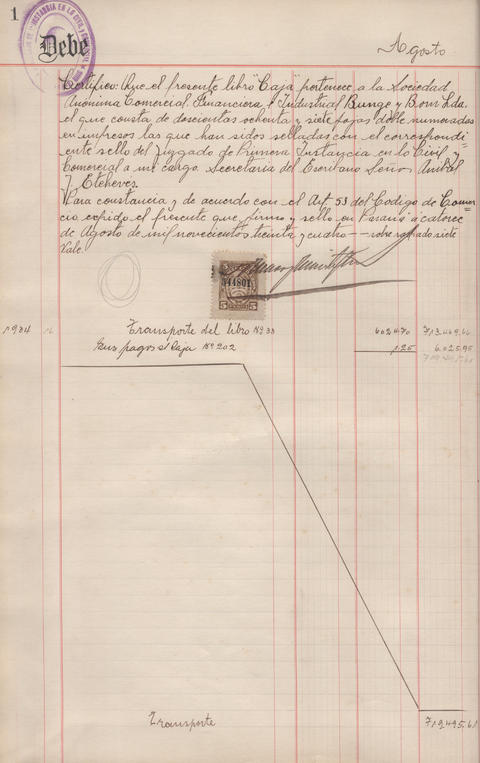 1
Debe
Agosto
Certifico: Que el presente libro "Caja" pertenece a la Sociedad
Anónima Comercial, Financiera é Industrial Bunge y Born Ltda.
el que consta de doscientas ochenta y siete fojas doble numeradas
en impresos las que han sidos selladas con el correspondi-
ente sello del Juzgado de Primera Instancia en lo Civil y
Comercial a mi cargo. Secretaria del Escribano Señor Anibal
J. Etcheves.
Para constancia y de acuerdo con el Art. 53 del Codigo de Comer
cio expido el presente que firmo y sello en Paraná a catorce
de Agosto de mil novecientos treinta y cuatro — sobre raspado siete
Vale.
344801
5 5
1934 16 Transporte del libro Nº 38 602470 713.469.66
Sus pagos s/ Caja Nº 202 1.25 6.025.95
719.495.61
Transporte 719495.61